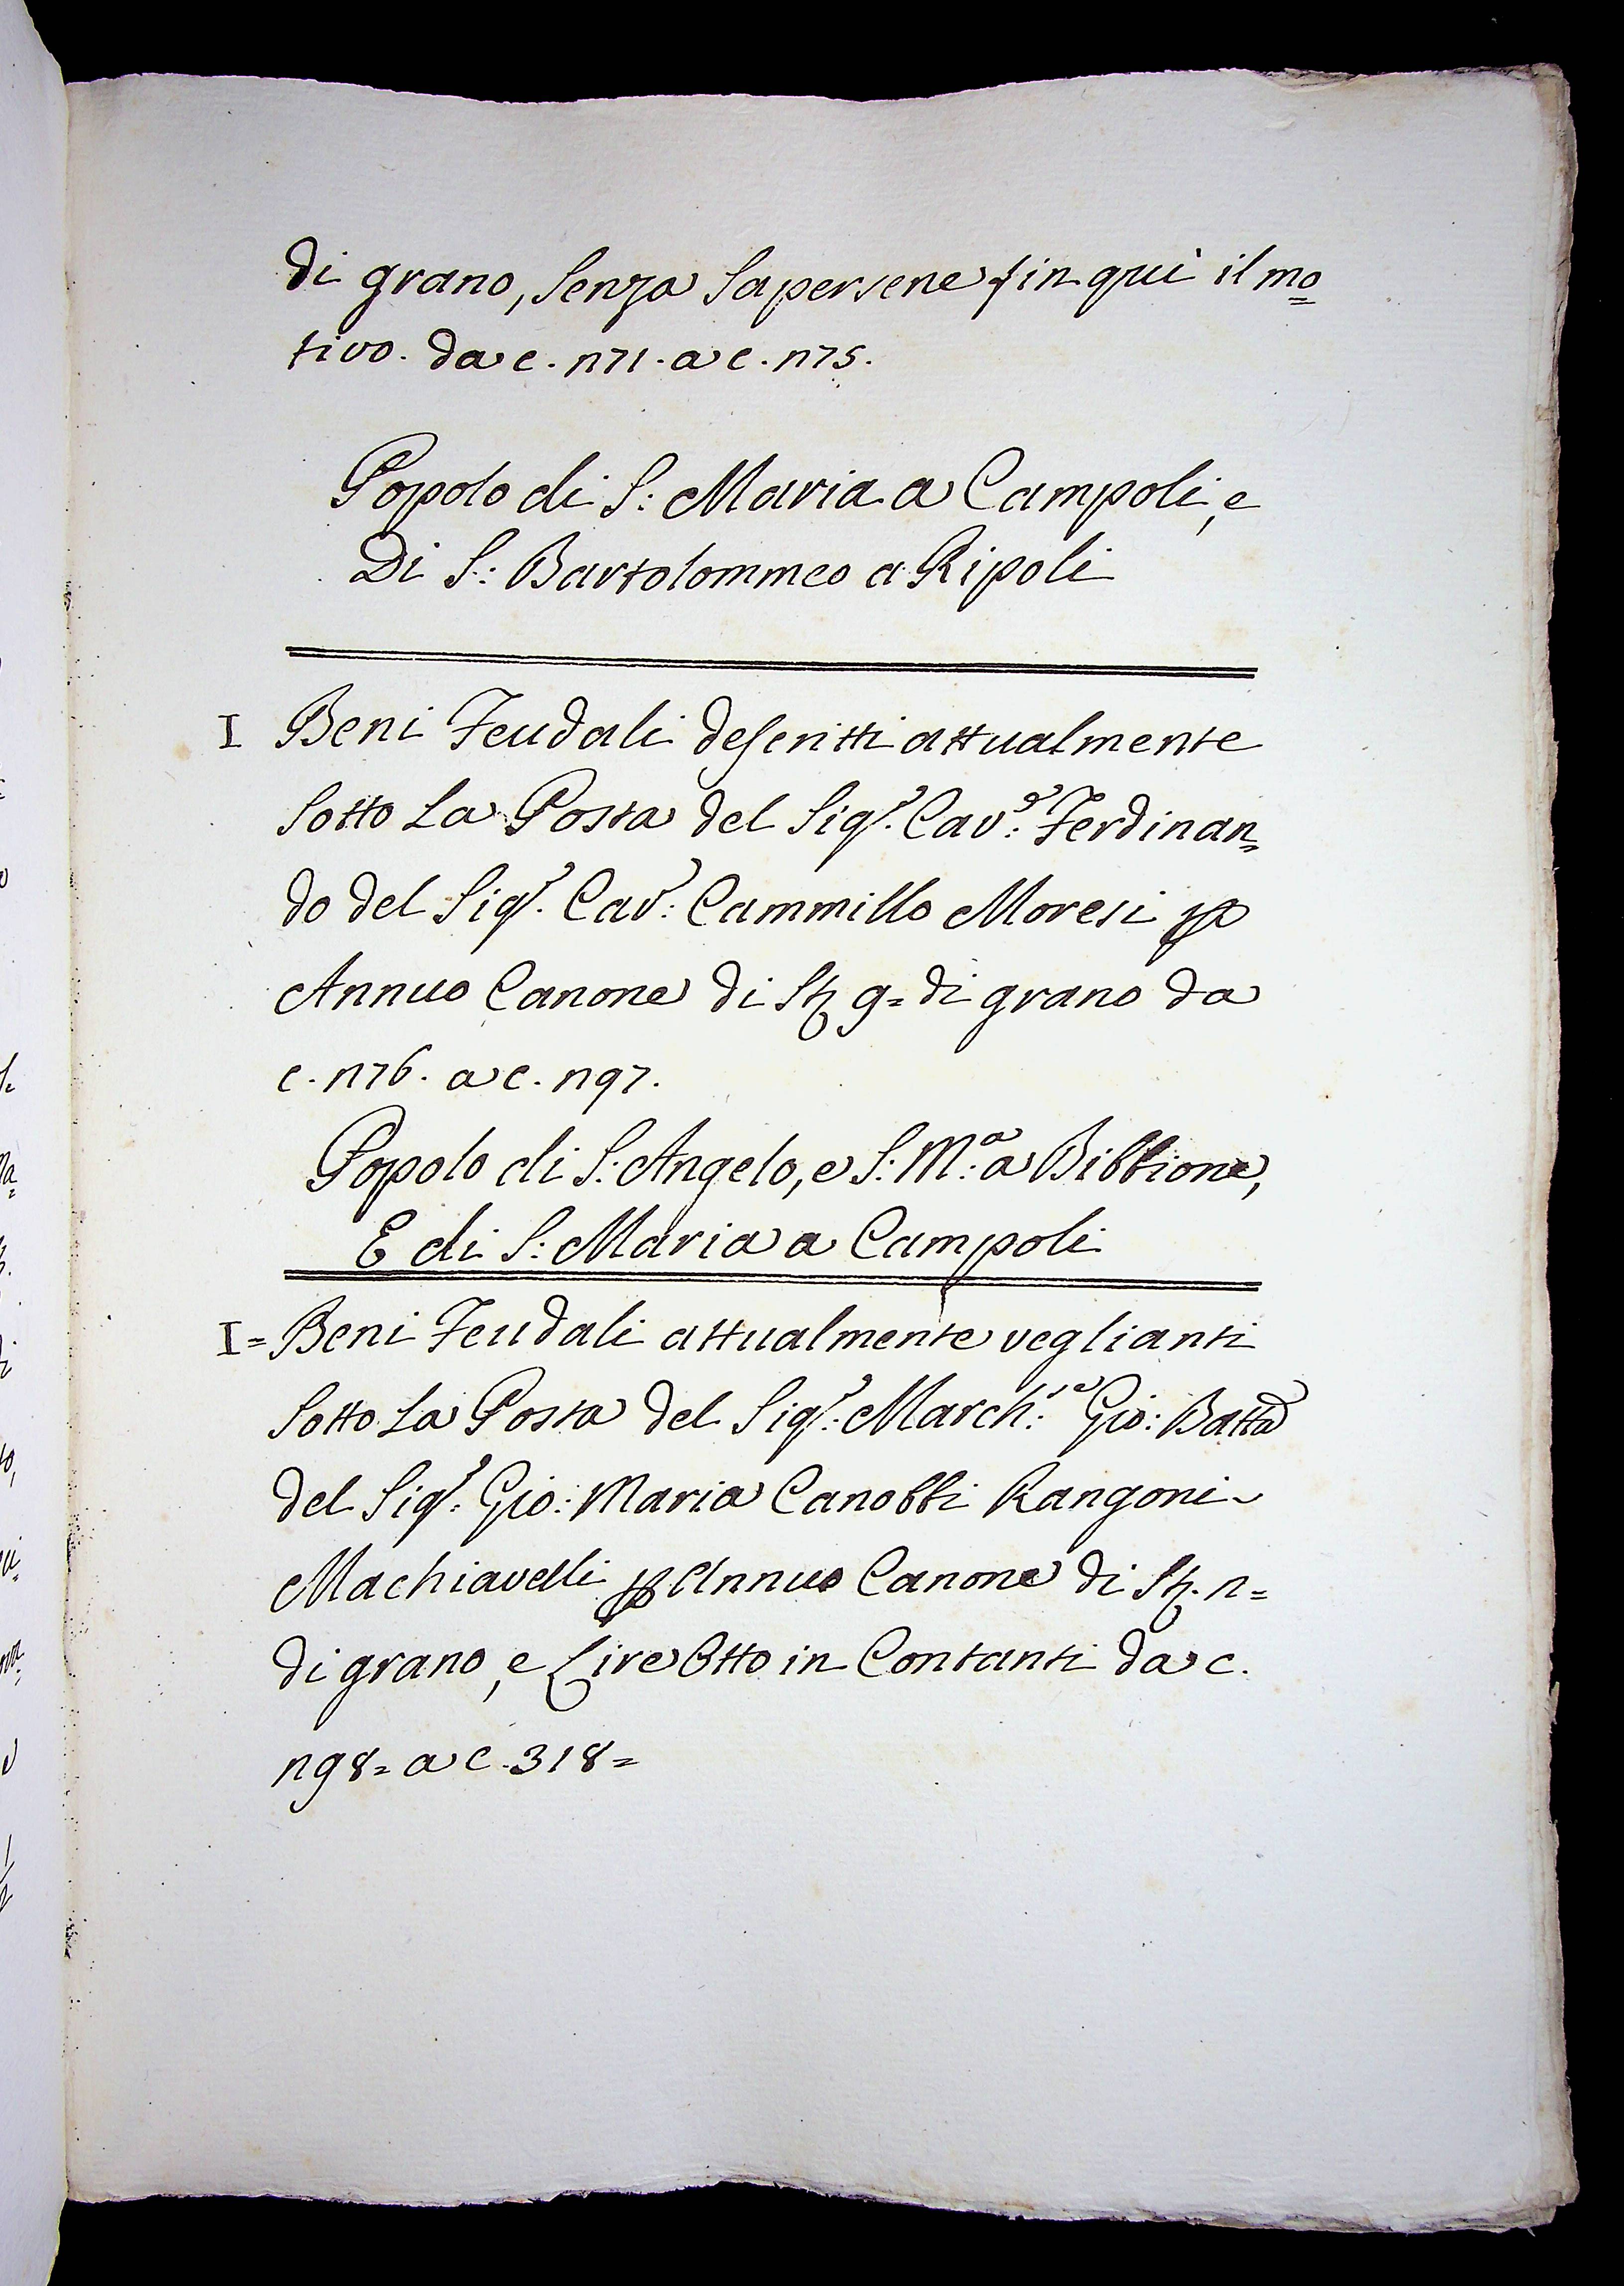 di grano, senza sapersene fin qui il mo=
tivo. da c. 271. a c. 275.
Popolo di S: Maria a Campoli, e
Di S: Bartolommeo a Ripoli
I Beni Feudali descritti attualmente
Sotto La Posta del Sigr. Cave: Ferdinan=
do del Sigr. Cavr: Cammillo Moresi p
Annuo Canone di St 9= di grano da
c. 276. a c. 297.
Popolo di S: Angelo, e S: Ma: a Bibbione,
E di S: Maria a Campoli
I= Beni Feudali attualmente veglianti
Sotto La Posta del Sigr: Marchse: Gio: Batta
del Sigr: Gio: Maria Canobbi Rangoni
Machiavelli p Annuo Canone di St. 2=
di grano, e Lire Otto in Contanti da c.
298= a c. 318=